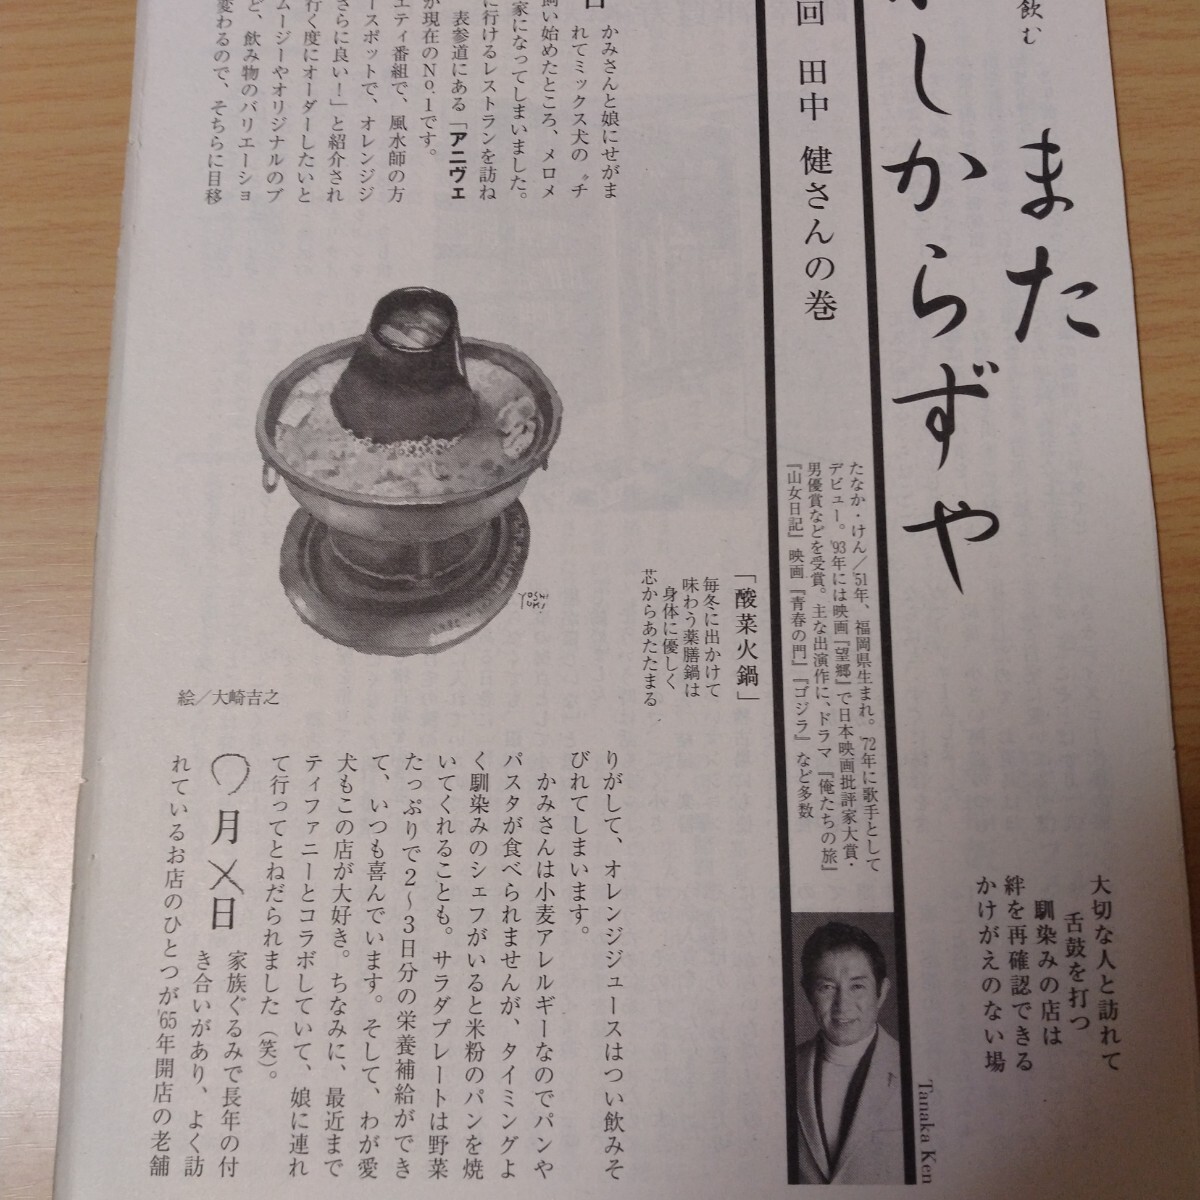 飲む
また
しからずや
回 田中 健さんの巻
大切な人と訪れて
舌鼓を打つ
馴染みの店は
絆を再確認できる
かけがえのない場
たなか・けん／'51年、福岡県生まれ。'72年に歌手として
デビュー。'93年には映画『望郷』で日本映画批評家大賞・
男優賞などを受賞。主な出演作に、ドラマ『俺たちの旅』
『山女日記』映画『青春の門』『ゴジラ』など多数
Tanaka Ken
かみさんと娘にせがま
れてミックス犬の〝チ
飼い始めたところ、メロメ
家になってしまいました。
に行けるレストランを訪ね
表参道にある「アニヴェ
が現在のNo.1です。
エティ番組で、風水師の方
ースポットで、オレンジジ
さらに良い！」と紹介され
行く度にオーダーしたいと
ムージーやオリジナルのブ
ど、飲み物のバリエーショ
変わるので、そちらに目移
「酸菜火鍋」
毎冬に出かけて
味わう薬膳鍋は
身体に優しく
芯からあたたまる
YOSHI
YUKI
絵／大崎吉之
りがして、オレンジジュースはつい飲みそ
びれてしまいます。
かみさんは小麦アレルギーなのでパンや
パスタが食べられませんが、タイミングよ
く馴染みのシェフがいると米粉のパンを焼
いてくれることも。サラダプレートは野菜
たっぷりで2〜3日分の栄養補給ができ
て、いつも喜んでいます。そして、わが愛
犬もこの店が大好き。ちなみに、最近まで
ティファニーとコラボしていて、娘に連れ
て行ってとねだられました（笑）。
〇月×日
家族ぐるみで長年の付
き合いがあり、よく訪
れているお店のひとつが'65年開店の老舗